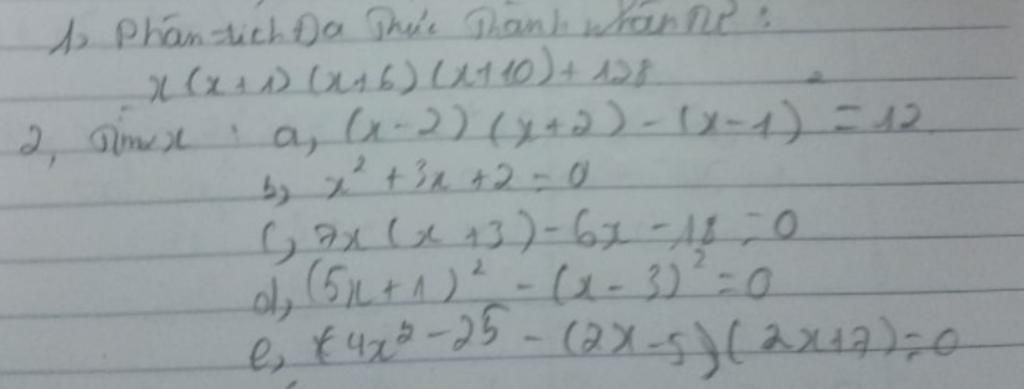 1, Phân tích Đa Thức Thành nhân tử :
x(x+1)(x+6)(x+10)+128
2, Tìm x : a, (x-2)(x+2)-(x-1)²=12
b, x²+3x+2=0
c, 7x(x+3)-6x-18=0
d, (5x+1)²-(x-3)²=0
e, 4x²-25-(2x-5)(2x+7)=0